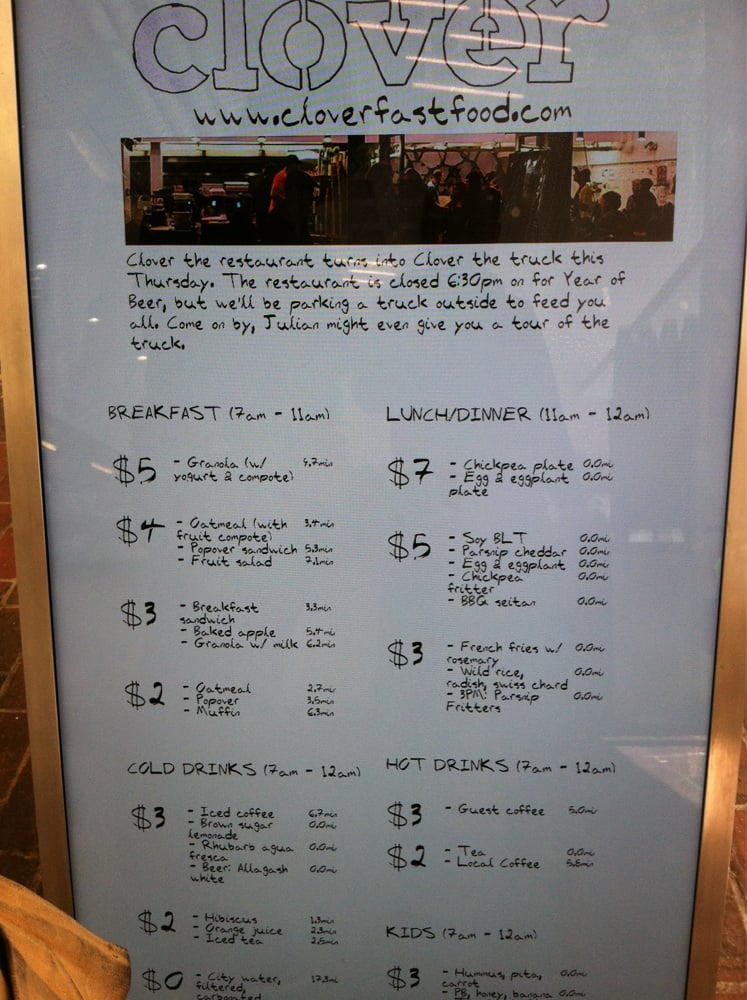 clover
www.cloverfastfood.com
Clover the restaurant turns into Clover the truck this
Thursday. The restaurant is closed 6:30pm on for Year of
Beer, but we'll be parking a truck outside to feed you
all. Come on by, Julian might even give you a tour of the
truck.
BREAKFAST (7am - 11am)
$5
- Granola (w/ 4.7min
yogurt & compote)
$4
- Oatmeal (with 3.4min
fruit compote)
- Popover sandwich 5.3min
- Fruit salad 7.1min
$3
- Breakfast 3.3min
sandwich
- Baked apple 5.4min
- Granola w/ milk 6.2min
$2
- Oatmeal 2.7min
- Popover 3.5min
- Muffin 6.3min
LUNCH/DINNER (11am - 12am)
$7
- Chickpea plate 0.0min
- Egg & eggplant 0.0min
plate
$5
- Soy BLT 0.0min
- Parsnip cheddar 0.0min
- Egg & eggplant 0.0min
- Chickpea 0.0min
fritter
- BBQ seitan 0.0min
$3
- French fries w/ 0.0min
rosemary
- Wild rice, 0.0min
radish, swiss chard
- 3PM: Parsnip 0.0min
Fritters
COLD DRINKS (7am - 12am)
$3
- Iced coffee 6.7min
- Brown sugar 0.0min
lemonade
- Rhubarb agua 0.0min
fresca
- Beer: Allagash 0.0min
white
$2
- Hibiscus 1.3min
- Orange juice 2.3min
- Iced tea 2.5min
$0
- City water, 17.3min
filtered,
carbonated
HOT DRINKS (7am - 12am)
$3
- Guest coffee 5.0min
$2
- Tea 0.0min
- Local Coffee 5.5min
KIDS (7am - 12am)
$3
- Hummus, pita, 0.0min
carrot
- PB, honey, banana 0.0min